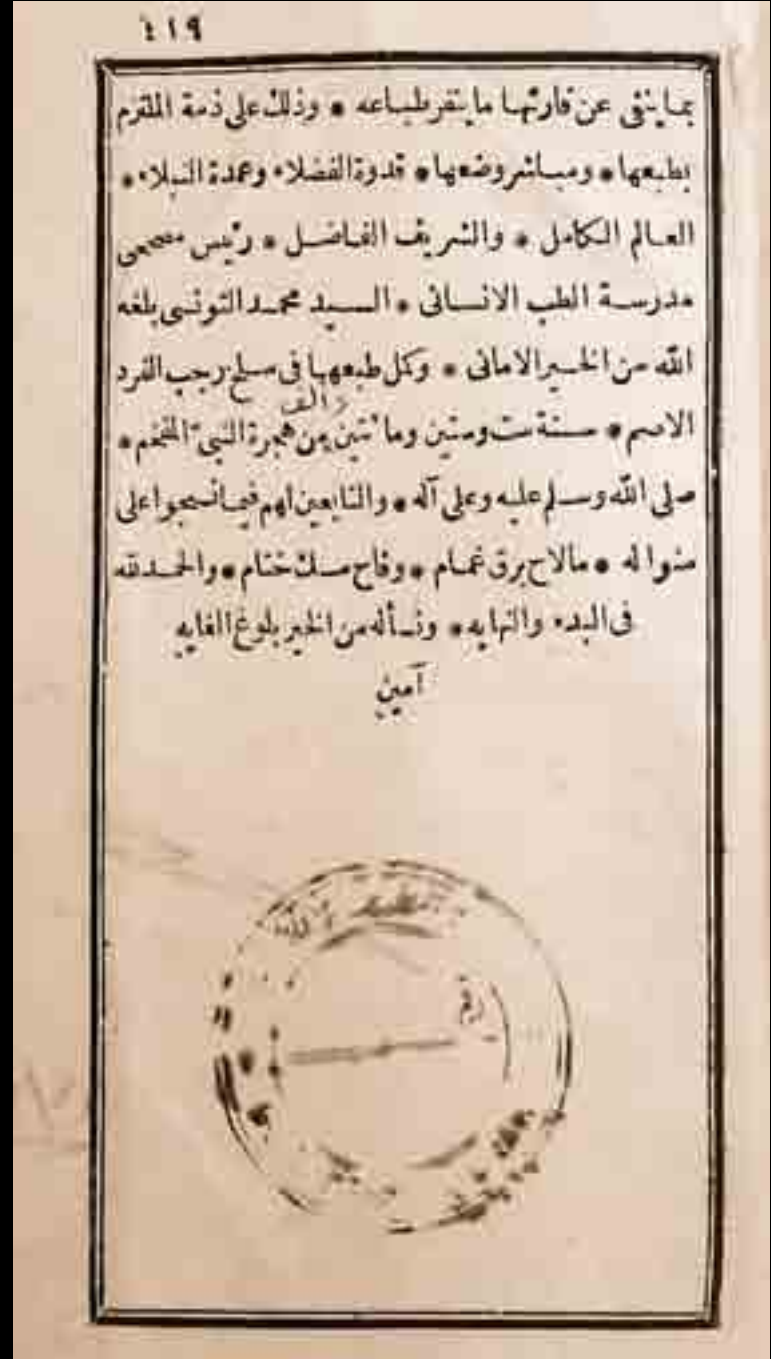 ٤١٩
بما ينفى عن قارئها ما ينفر طباعه * وذلك على ذمة الملتزم
بطبعها * ومباشر وضعها * قدوة الفضلاء وعمدة النبلاء *
العالم الكامل * والشريف الفاضل * رئيس مصححى
مدرسة الطب الانسانى * السيد محمد التونسى بلغه
الله من الخير الامانى * وكمل طبعها فى سلخ رجب الفرد
والف
الاصم * سنة ست وستين ومائتين من هجرة النبى المفخم *
صلى الله وسلم عليه وعلى آله * والتابعين لهم فيما نسجوا على
منواله * مالاح برق غمام * وفاح مسك ختام * والحمد لله
فى البدء والنهايه * ونسأله من الخير بلوغ الغايه
آمين
رقم